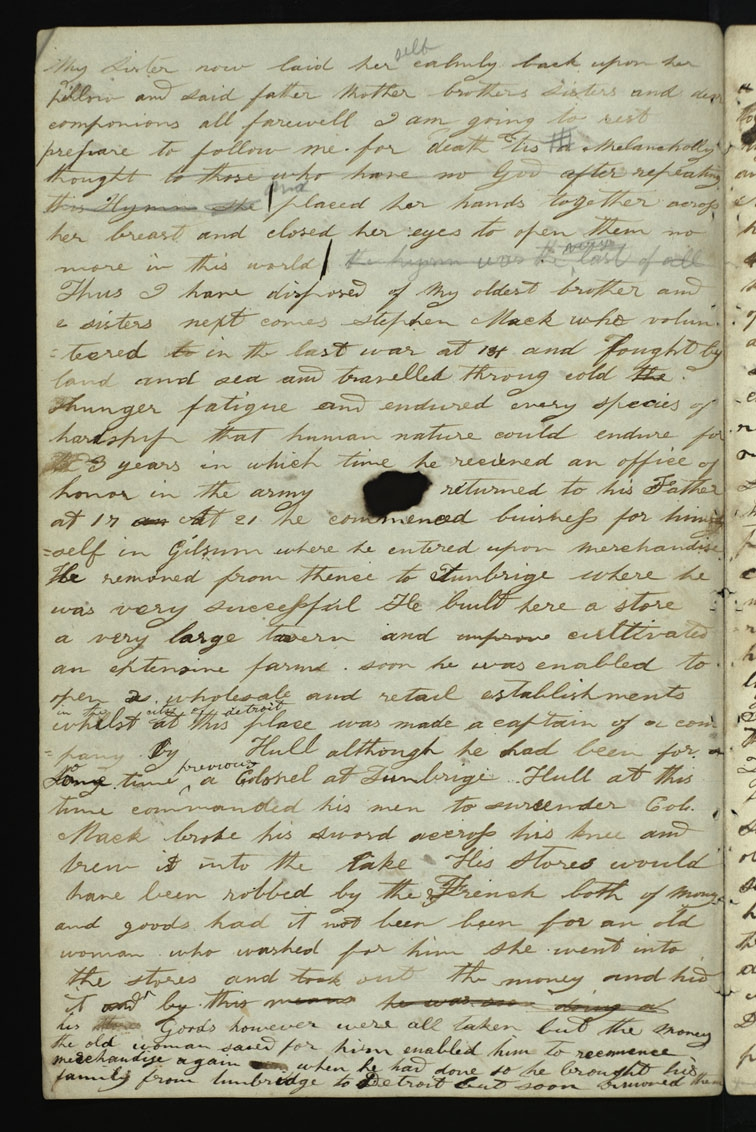 My sister now laid her self calmly back upon her
pillow and said father Mother brothers sisters and dear
companions all farewell I am going to rest
prepare to follow me. for death 'tis a Melancholly
thought to those who have no God after repeating
this Hymn she and placed her hands together across
her breast and closed her eyes to open them no
more in this world the hymn was the last of all
Thus I have disposed of my oldest brother and
sisters next comes Stephen Mack who volun-
=teered to in the last war at 14 and fought by
land and sea and travelled throug cold the
hunger fatigue and endured every species of
hardship that human nature could endure for
3 years in which time he recieved an office of
honor in the army returned to his Father
at 17 at 21 he commenced buisness for him
=self in Gilsum where he entered upon merchandise
He removed from thence to Tunbrige where he
was very successful He built here a store
a very large tavern and improve culttivated
an extensive farm. soon he was enabled to
open 2 wholesale and retail establishments
in the city of detroit
whilst at this place was made a captain of a com
=pany by Hull although he had been for a
long time previous a Colonel at Tunbrige Hull at this
time commanded his men to surrender Col.
Mack broke his sword accross his knee and
threw it into the lake His stores would
have been robbed by the French both of money
and goods had it not been been for an old
woman who washed for him she went into
the stores and took out the money and hid
it and by this means he was doing a
his Goods however were all taken but the money
the old woman saved for him enabled him to recmence
merchandise again when he had done so he brought his
family from tunbridge to Detroit but soon removed them